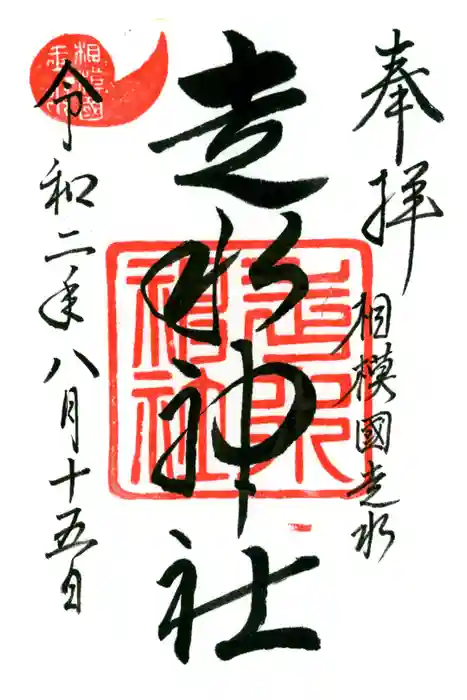 奉拝
相模國走水
走水神社
走水神社
令和二年八月十五日
相模國